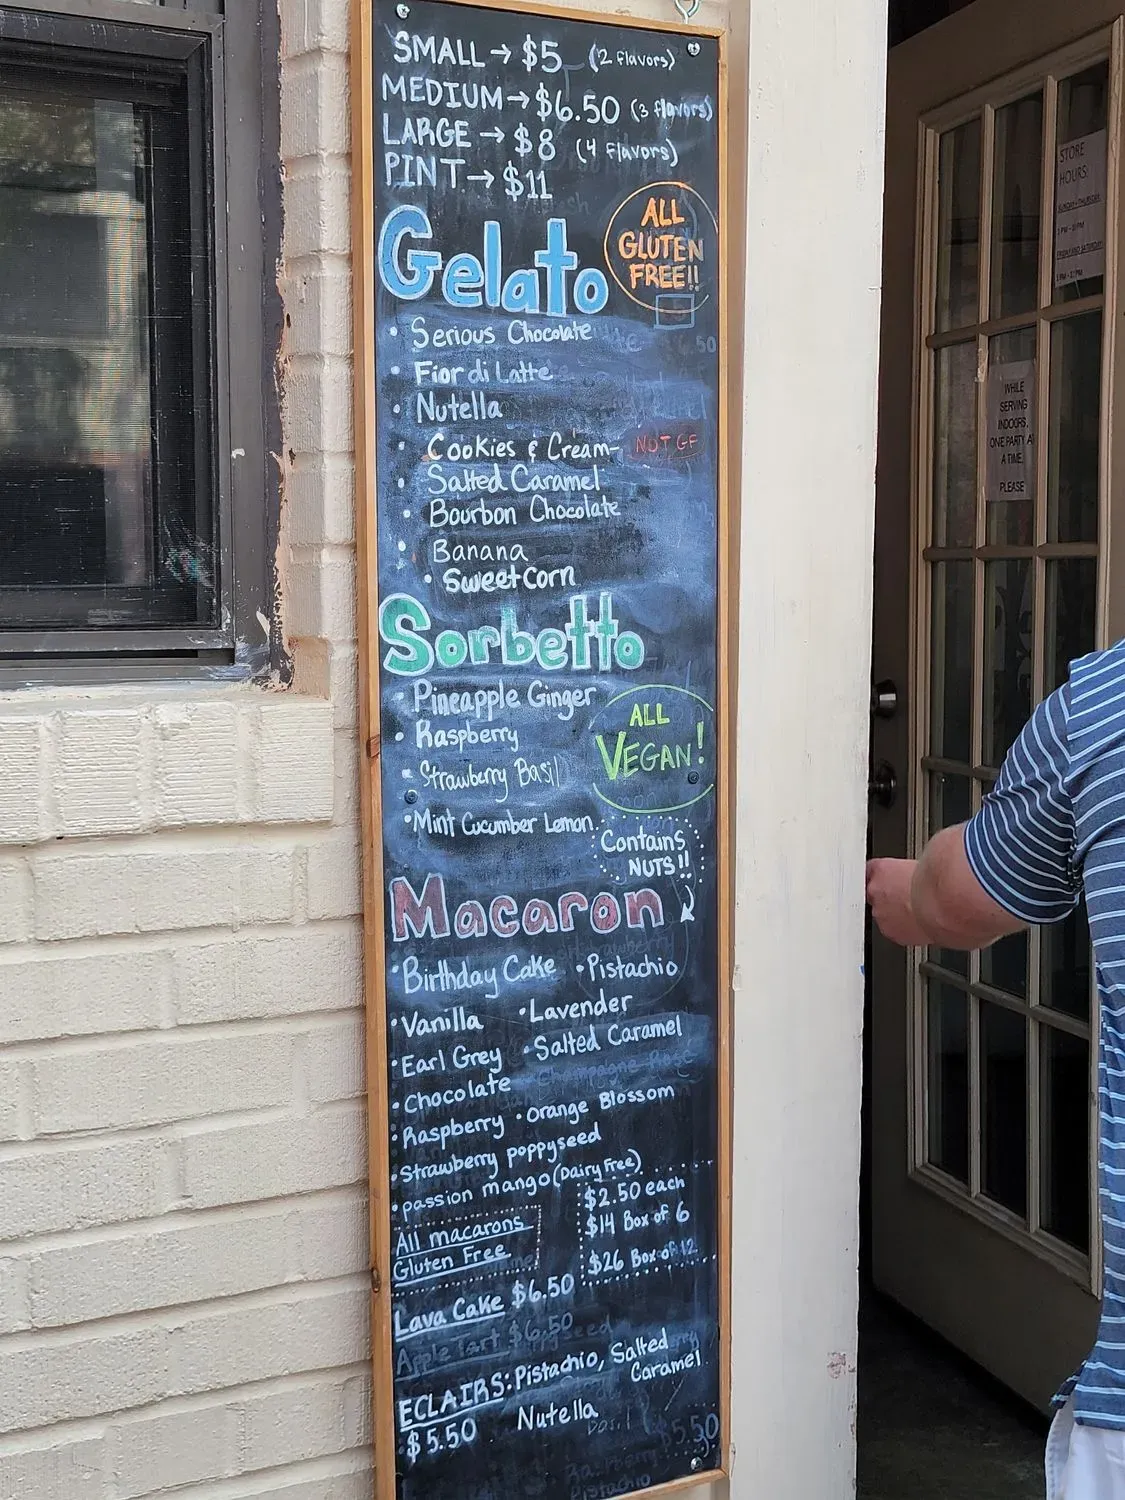 SMALL → $5 (2 flavors)
MEDIUM → $6.50 (3 flavors)
LARGE → $8 (4 flavors)
PINT → $11
Gelato
ALL
GLUTEN
FREE!!
• Serious Chocolate
• Fior di Latte
• Nutella
• Cookies & Cream- NOT GF
• Salted Caramel
• Bourbon Chocolate
• Banana
• Sweet Corn
Sorbetto
• Pineapple Ginger
• Raspberry
• Strawberry Basil
• Mint Cucumber Lemon
ALL
VEGAN!
Contains
NUTS!!
Macaron
• Birthday Cake • Pistachio
• Vanilla • Lavender
• Earl Grey • Salted Caramel
• Chocolate
• Raspberry • Orange Blossom
• Strawberry poppyseed
• passion mango (Dairy Free)
All macarons
Gluten Free
$2.50 each
$14 Box of 6
$26 Box of 12
Lava Cake $6.50
Apple Tart $6.50
ECLAIRS: Pistachio, Salted
Caramel
$5.50 Nutella
STORE
HOURS:
WHILE
SERVING
INDOORS,
ONE PARTY AT
A TIME.
PLEASE